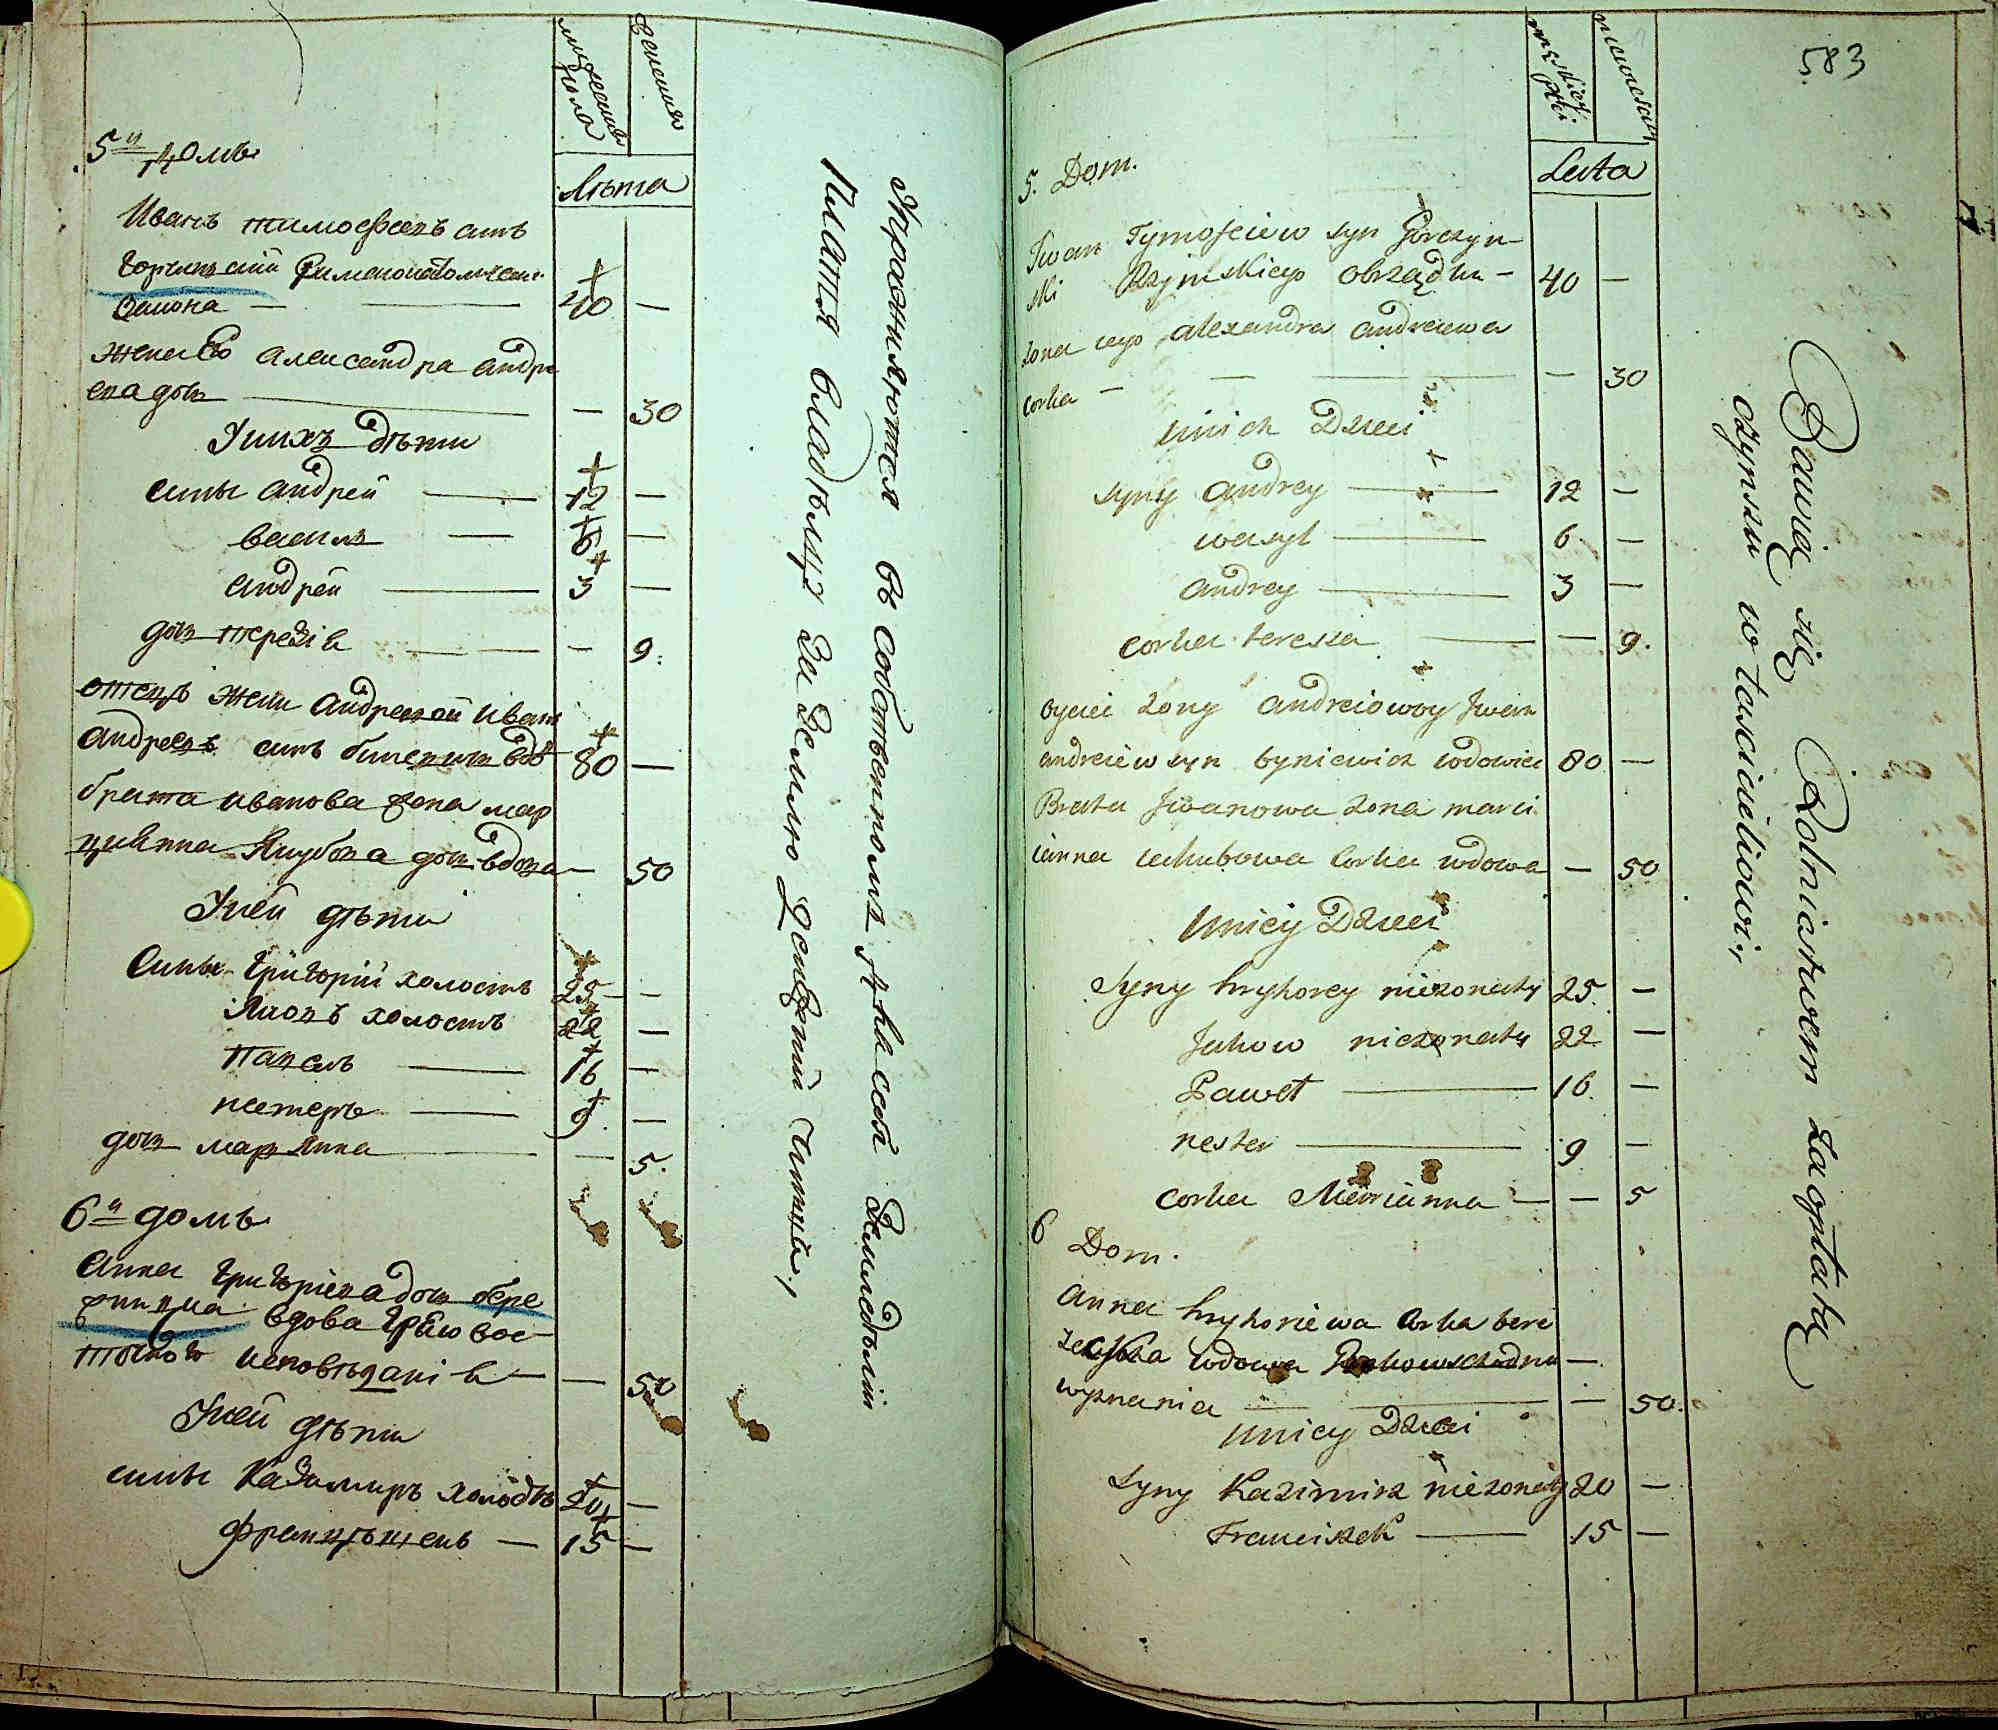 мужеска пола
женска
Лѣта
5й домъ
Иванъ тимофеевъ сынъ
Горчинский Римскокатолическ.
закона — 40 —
жена Его александра андре
ева дочь — 30
У нихъ дѣти
сыны андрей — 12 —
василь — 6 —
андрей — 3 —
дочь терезія — 9.
отецъ жены андреевой иванъ
андреевъ сынъ биневичъ вдовъ 80 —
брата иванова жена мар
цианна Якубова дочь вдова — 50
У ней дѣти
Сыны Григорій холостъ 25 —
Яковъ холостъ 22 —
Павелъ — 16 —
нестеръ — 9. —
дочь марьянна — 5.
6й домъ
анна григоріева дочь бере
вдова Греко вос
точного исповѣданія — 50
У ней дѣти
сыны Казимиръ холостъ 20 —
францѣшекъ — 15 —
Упражняются въ собственномъ Для себя Земледѣлии
Платя владѣльцу за Землю Денежный чиншъ,
583
męskiej płci
niewieściej
Lata
5. Dom.
Jwan Tymofeiew syn Górczyn-
ski Rzymskiego obrządku — 40 —
zona iego alexandra andreiewa
corka — — 30
Unich Dzieci
syny andrey — 12 —
wasyl — 6 —
andrey — 3 —
corka teresza — 9.
oyciec zony andreiowoy Jwan
andreiew syn byniewicz wdowiec 80 —
Brata Jwanowa zona marci
ianna iakubowa Corka wdowa — 50
Uniey Dzieci
Syny hryhorey niezonaty 25 —
Jakow niezonaty 22 —
Paweł — 16. —
nester — 9 —
corka Marianna — — 5
6 Dom.
anna hryhoriewa Corka bere
wdowa Grekowschodnie —
wyznania — — 50.
Uniey Dzieci
Syny Kazimirz niezonaty 20 —
Franciszek — 15 —
Bawią się Rolnictwem zapłatą
czynszu włascicielowi.,